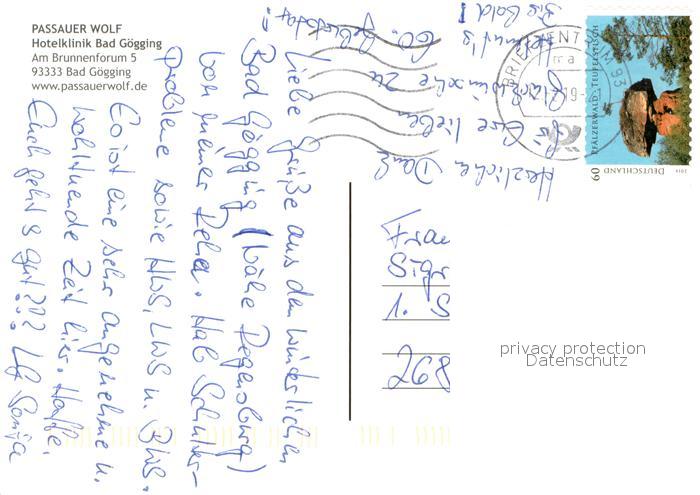 PASSAUER WOLF
Hotelklinik Bad Gögging
Am Brunnenforum 5
93333 Bad Gögging
www.passauerwolf.de
Liebe Grüße aus dem winterlichen
Bad Gögging (Nähe Regensburg)
von meiner Reha. Hab Schulter-
probleme sowie HWS, LWS u. BWS.
Es ist eine sehr angenehme u.
wohltuende Zeit hier. Hoffe,
Euch geht's gut??? LG Sonja
Herzlichen Dank
für Eure lieben
Glückwünsche zu
Helmut's 60.
Geburtstag!
Bis bald!
BRIEFZENTRUM 93
PFÄLZERWALD - TEUFELSTISCH
DEUTSCHLAND
60
Frau
Sigr
1. S
268
privacy protection
Datenschutz